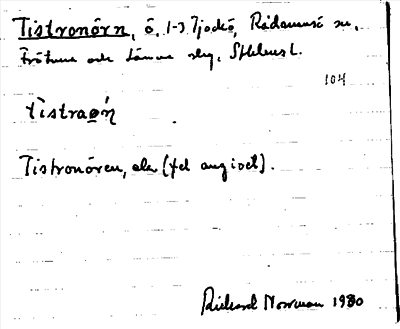 Tistronörn, ö, 1-3 Tjockö, Rådmansö sn,
Frötuna och Länna slg, Sthlms l.
104
tistraǫ́ɳ
Tistronören, ek (fel angivet).
Richard Norrman 1980